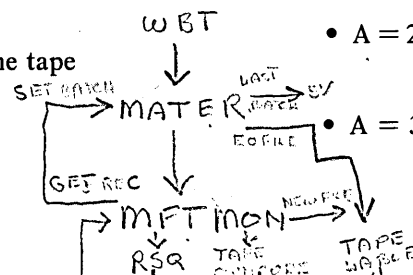 WBT
• A = 2
ne tape
SET BATCH
LAST
MATER
EOFILE
• A = 3
GET REC
MFTMON
NEW FILE
RSQ
TAPE
TAPE